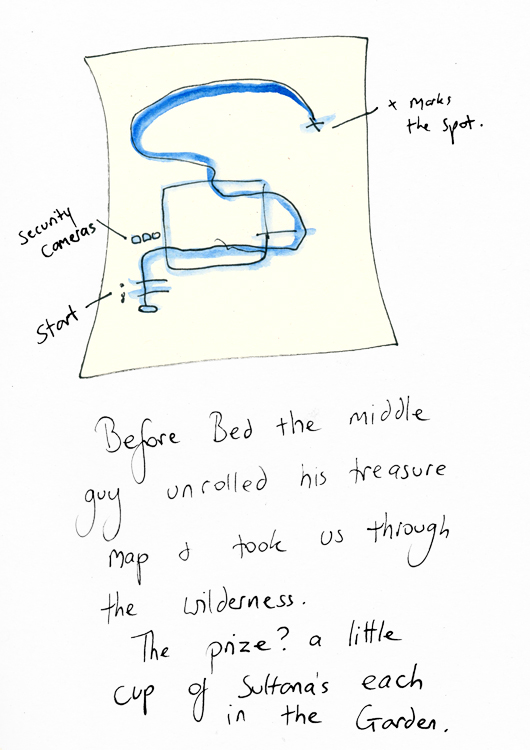 x marks
the spot.
Security
Cameras
Start
Before Bed the middle
guy unrolled his treasure
map & took us through
the wilderness.
The prize? a little
cup of Sultana's each
in the Garden.